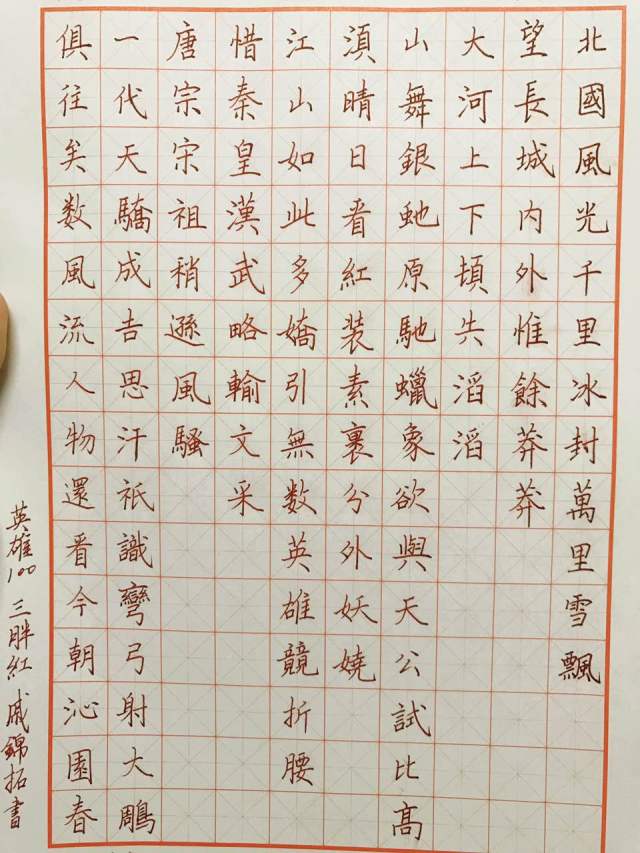 北國風光千里冰封萬里雪飄
望長城内外惟餘莽莽
大河上下頓失滔滔
山舞銀虵原馳蠟象欲與天公試比高
湏晴日看紅装素裹分外妖娆
江山如此多嬌引無数英雄競折腰
惜秦皇漢武略輸文采
唐宗宋祖稍遜風騷
一代天驕成吉思汗祇識彎弓射大鵰
俱往矣数風流人物還看今朝沁園春
英雄100 三胖紅 戚錦拓書